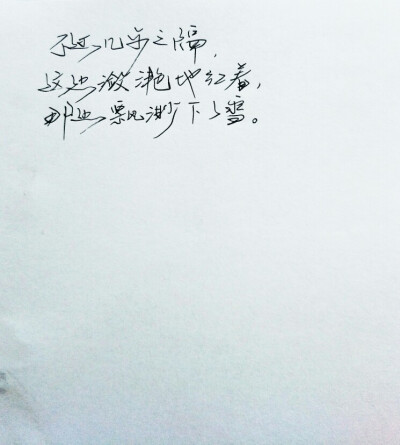 不过几步之隔，
这边潋滟地红着，
那边飘渺下了雪。